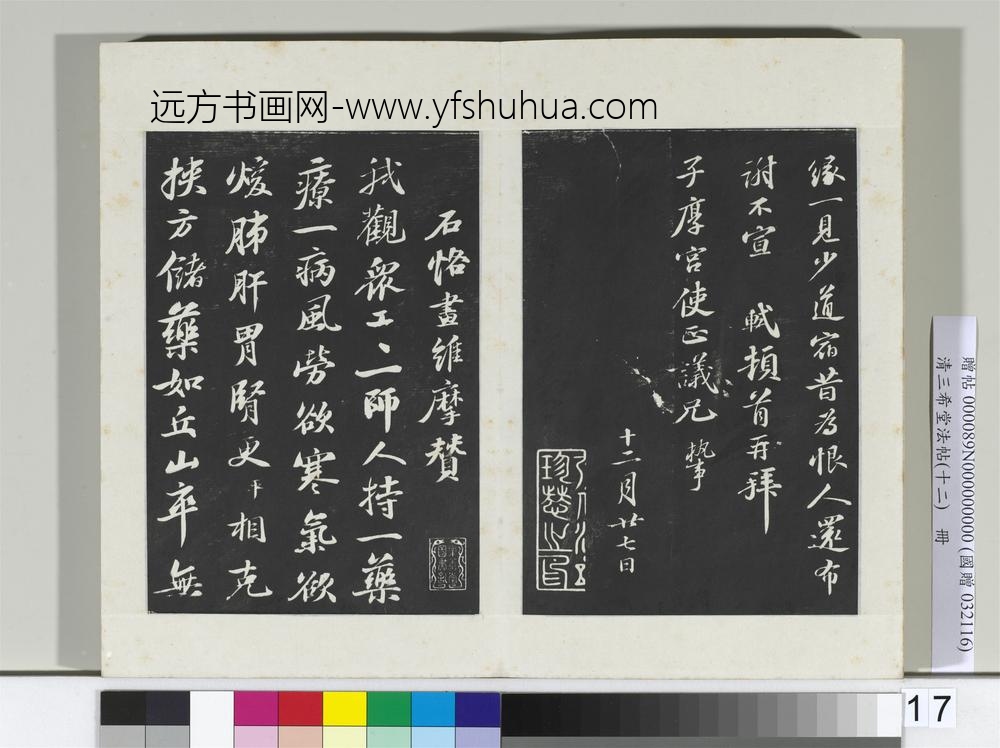 远方书画网-www.yfshuhua.com
緣一見少道宿昔為恨人還布
謝不宣 軾頓首再拜
子厚宮使正議兄 執事
十二月廿七日
石恪畫維摩贊
我觀眾工工師人持一藥
療一病風勞欲寒氣欲
煖肺肝胃腎更相克
挾方儲藥如丘山卒無
贈帖 000089N000000000 (國贈 032116)
清三希堂法帖(十二) 冊
17